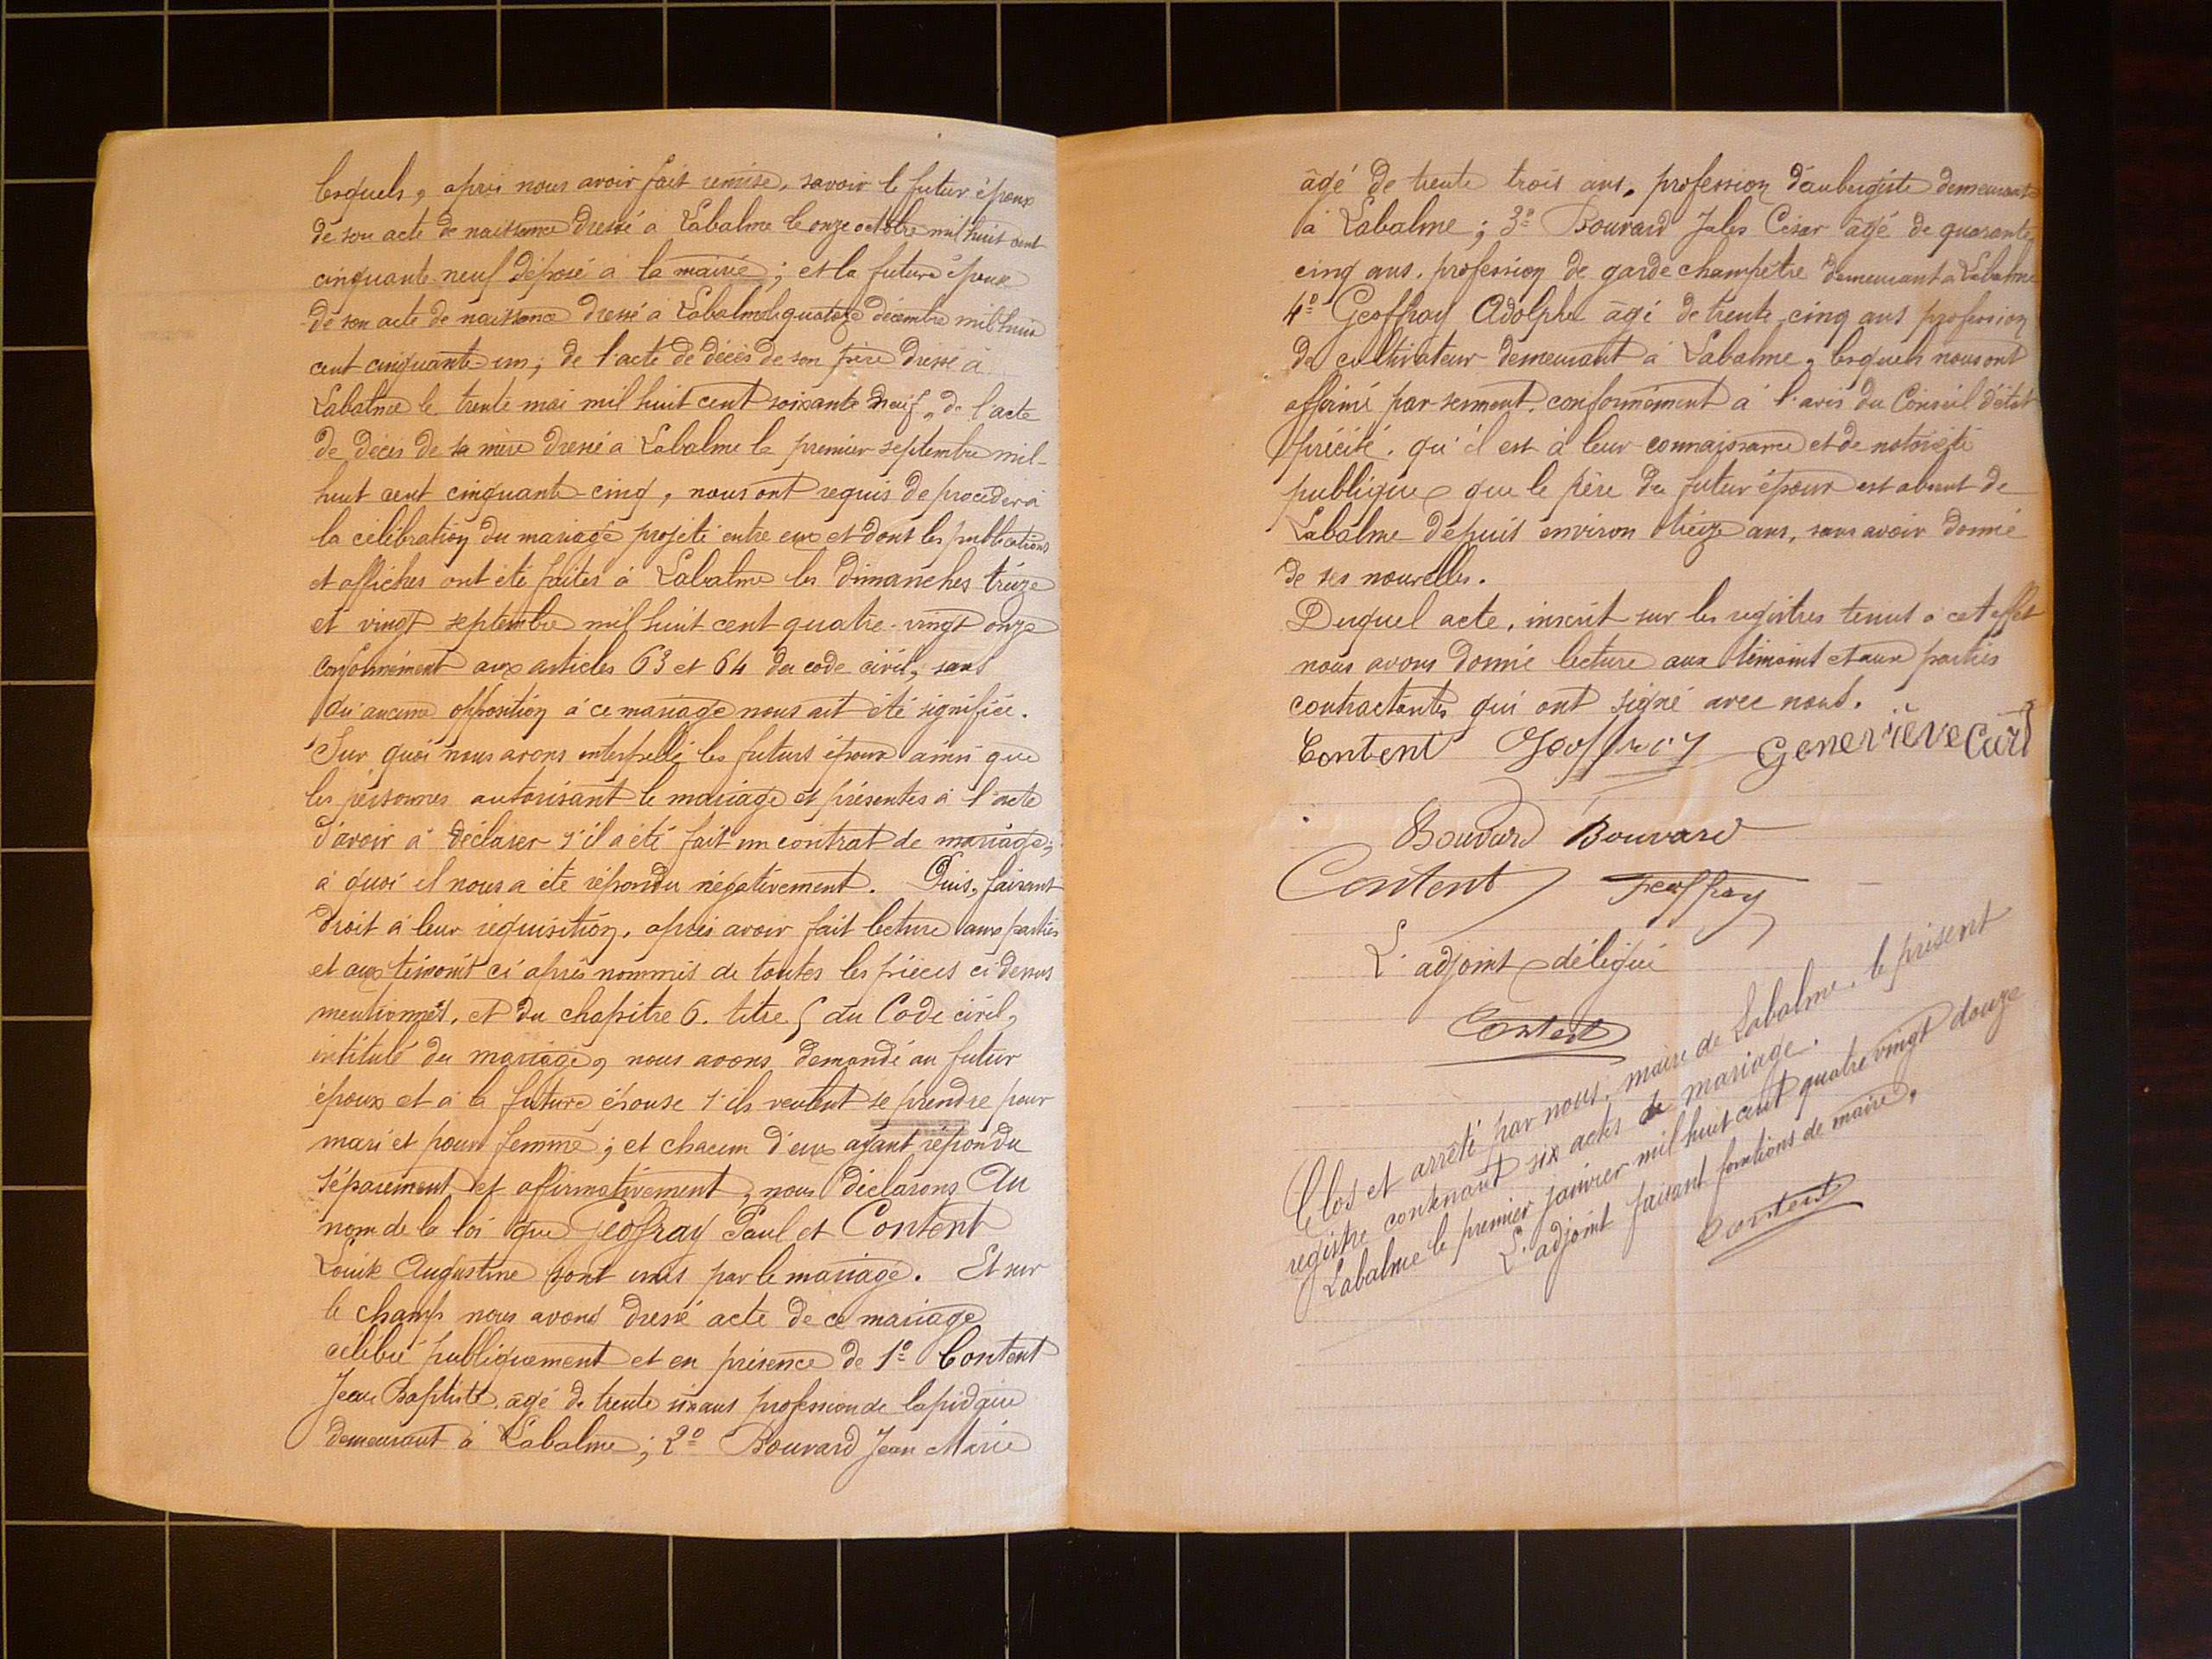 lesquels, après nous avoir fait remise, savoir le futur époux
de son acte de naissance dressé à Labalme le onze octobre mil huit cent
cinquante neuf déposé à la mairie; et la future épouse
de son acte de naissance dressé à Labalme le quatorze décembre mil huit
cent cinquante-un; de l'acte de décès de son père dressé à
Labalme le trente mai mil huit cent soixante neuf, de l'acte
de décès de sa mère dressé à Labalme le premier septembre mil-
huit cent cinquante-cinq, nous ont requis de procéder à
la célébration du mariage projeté entre eux et dont les publications
et affiches ont été faites à Labalme les dimanches treize
et vingt septembre mil huit cent quatre-vingt onze
conformément aux articles 63 et 64 du code civil, sans
qu'aucune opposition à ce mariage nous ait été signifiée.
Sur quoi nous avons interpellé les futurs époux ainsi que
les personnes autorisant le mariage et présentes à l'acte
d'avoir à déclarer s'il a été fait un contrat de mariage;
à quoi il nous a été répondu négativement. Puis, faisant
droit à leur réquisition, après avoir fait lecture aux parties
et aux témoins ci après nommés de toutes les pièces ci dessus
mentionnés, et du chapitre 6. titre 5 du Code civil,
intitulé du mariage, nous avons demandé au futur
époux et à la future épouse s'ils veulent se prendre pour
mari et pour femme; et chacun d'eux ayant répondu
séparément et affirmativement, nous déclarons Au
nom de la loi que Geoffray Paul et Content
Louise Augustine sont unis par le mariage. Et sur
le champ nous avons dressé acte de ce mariage
célébré publiquement et en présence de 1º Content
Jean Baptiste âgé de trente six ans profession de lapidaire
demeurant à Labalme; 2º Bouvard Jean Marie
âgé de trente trois ans, profession d'aubergiste demeurant
à Labalme; 3º Bouvard Jules César âgé de quarante
cinq ans, profession de garde champêtre demeurant à Labalme
4º Geoffray Adolphe âgé de trente cinq ans profession
de cultivateur demeurant à Labalme, lesquels nous ont
affirmé par serment, conformément à l'avis du Conseil d'état
précité, qu'il est à leur connaissance et de notoriété
publique que le père du futur époux est absent de
Labalme depuis environ treize ans, sans avoir donné
de ses nouvelles.
Duquel acte, inscrit sur les registres tenus à cet effet
nous avons donné lecture aux témoins et aux parties
contractantes qui ont signé avec nous.
Content Geoffray Geneviève Curt
Bouvard Bouvard
Content Geoffray
L'adjoint délégué
Content
Clos et arrêté par nous, maire de Labalme, le présent
registre contenant six actes de mariage.
Labalme le premier janvier mil huit cent quatre vingt douze
L'adjoint faisant fonctions de maire,
Content